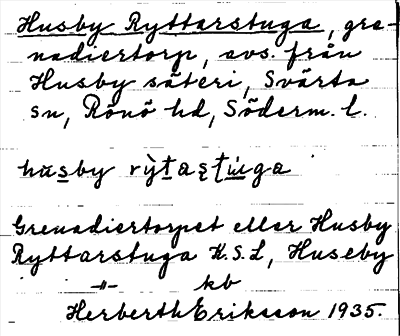 Husby Ryttarstuga, gre-
nadiertorp, avs. från
Husby säteri, Svärta
sn, Rönö hd, Söderm. l.
husby rỳtastùga
Grenadiertorpet eller Husby
Ryttarstuga K.S.L, Huseby
-"- kb
Herberth Eriksson 1935.